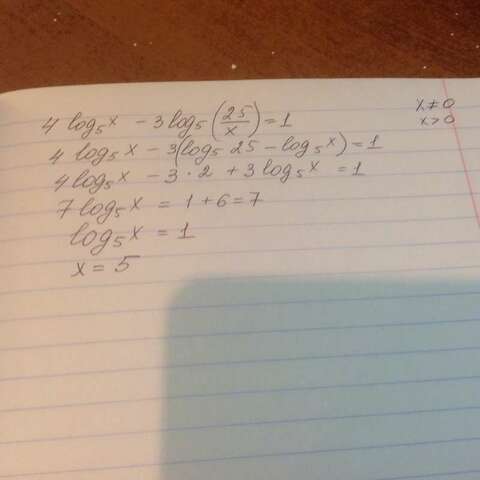 4 log₅x - 3log₅(25/x) = 1
x ≠ 0
x > 0
4 log₅x - 3(log₅ 25 - log₅x) = 1
4log₅x - 3 · 2 + 3log₅x = 1
7log₅x = 1 + 6 = 7
log₅x = 1
x = 5